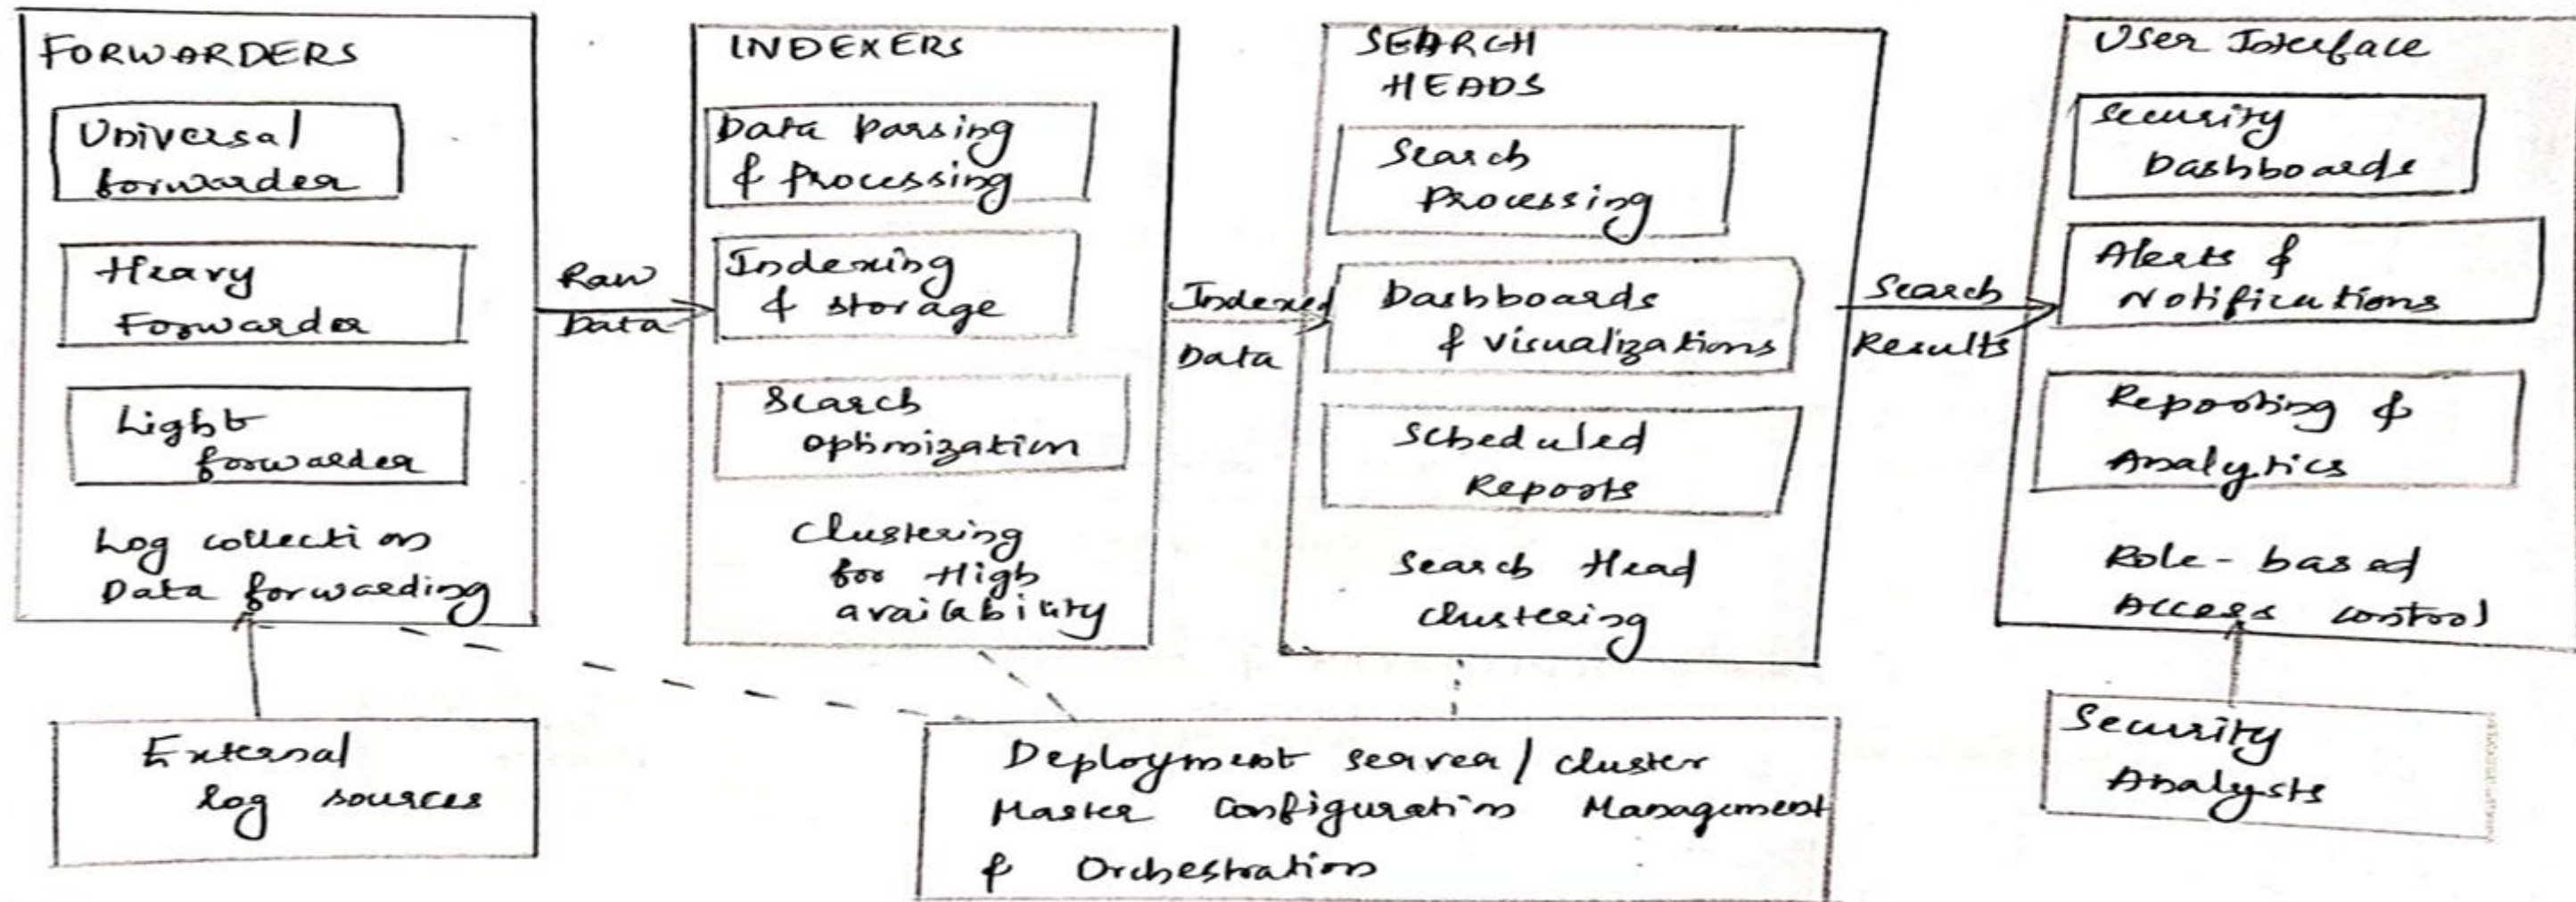 FORWARDERS
Universal
forwarder
Heavy
Forwarder
Light
forwarder
Log collection
Data forwarding
Raw
Data
INDEXERS
Data Parsing
& Processing
Indexing
& storage
Search
optimization
Clustering
for High
availability
Indexed
Data
SEARCH
HEADS
Search
Processing
Dashboards
& visualizations
Scheduled
Reports
Search Head
Clustering
Search
Results
User Interface
Security
Dashboards
Alerts &
Notifications
Reporting &
Analytics
Role-based
Access control
External
log sources
Deployment server / cluster
Master Configuration Management
& Orchestration
Security
Analysts